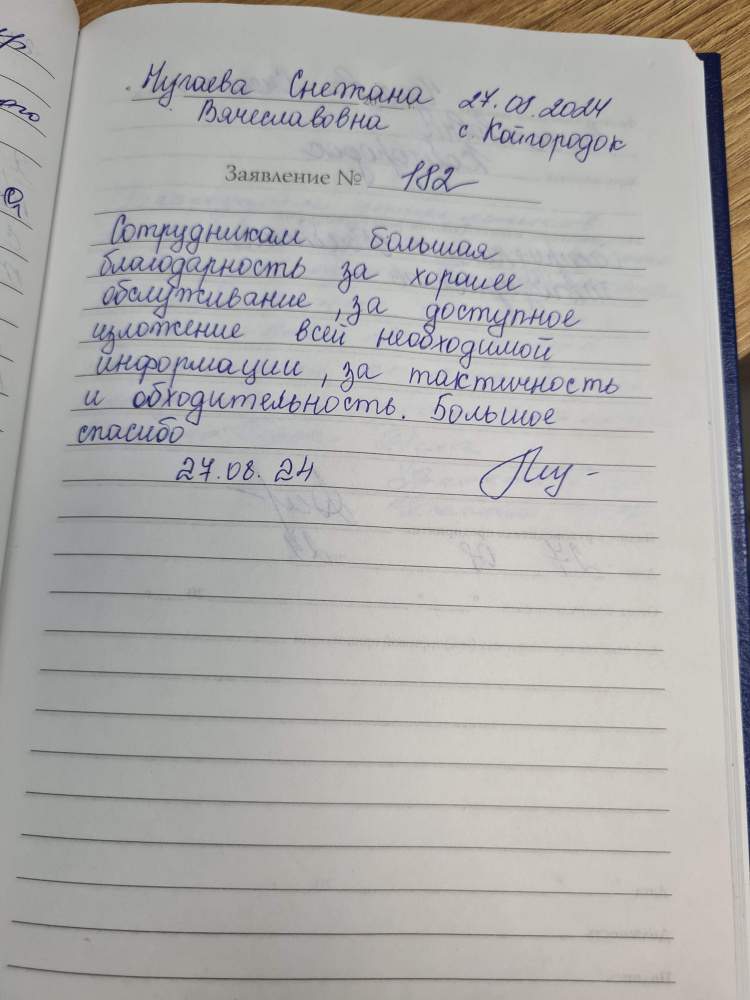 Нугаева Снежана 27.08.2024
Вячеславовна с. Койгородок
Заявление № 182
Сотрудникам большая
благодарность за хорошее
обслуживание, за доступное
изложение всей необходимой
информации, за тактичность
и обходительность. Большое
спасибо
27.08.24